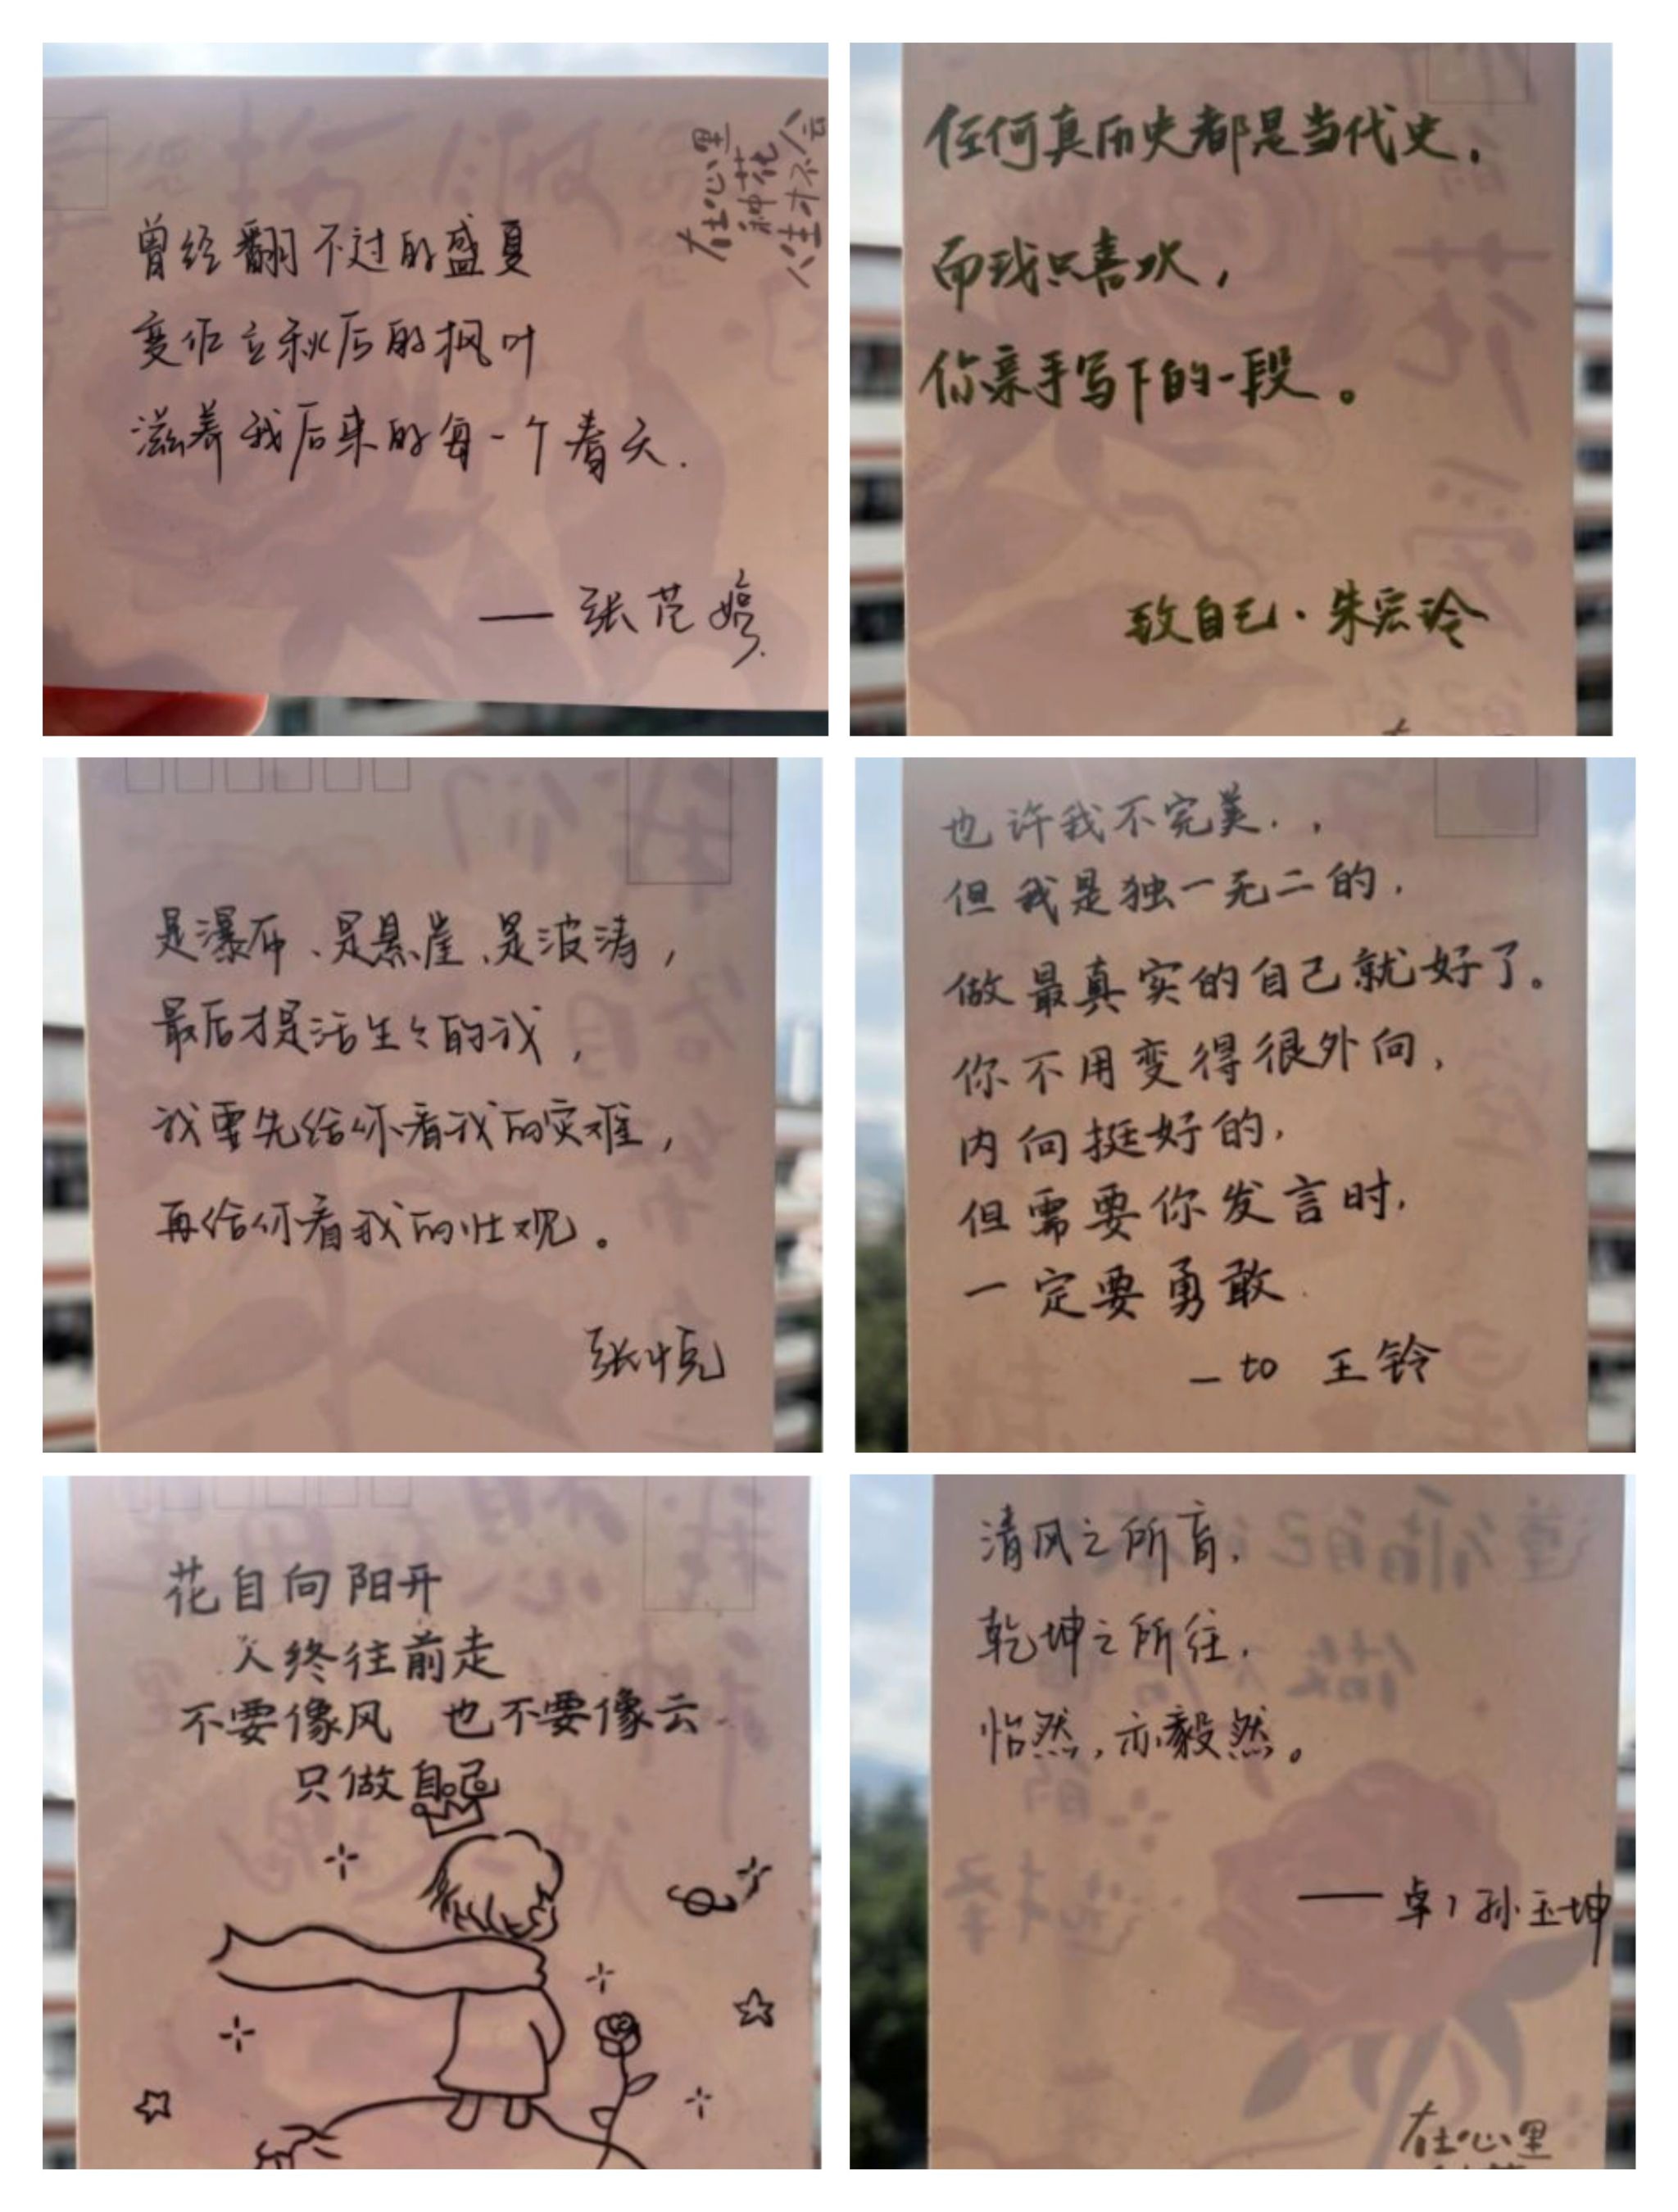 曾经翻不过的盛夏
变作立秋后的枫叶
滋养我后来的每一个春天.
——张范婷.
在心里
种花
人生才不会
任何真历史都是当代史,
而我只喜欢,
你亲手写下的一段。
致自己·朱宏玲
是瀑布、是悬崖、是波涛,
最后才是活生々的我,
我要先给你看我的灾难,
再给你看我的壮观。
张忱
也许我不完美.,
但我是独一无二的,
做最真实的自己就好了。
你不用变得很外向,
内向挺好的,
但需要你发言时,
一定要勇敢.
—to 王铃
花自向阳开
人终往前走
不要像风 也不要像云
只做自己
清风之所育,
乾坤之所往,
怡然,亦毅然。
——卓1孙玉坤
在心里